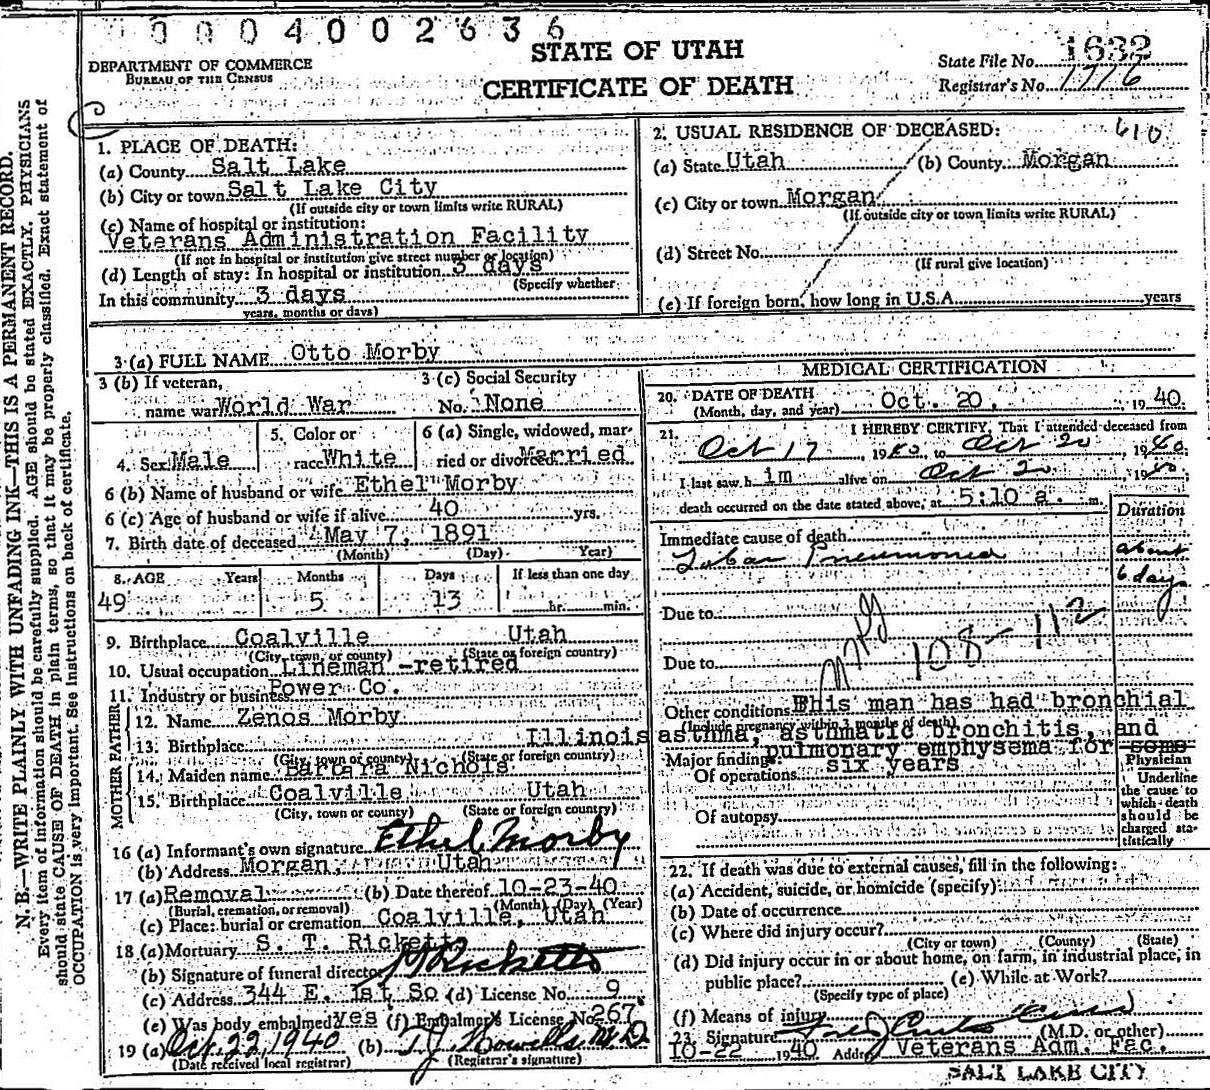 0004002636
STATE OF UTAH
CERTIFICATE OF DEATH
DEPARTMENT OF COMMERCE
BUREAU OF THE CENSUS
State File No. 1632
Registrar's No. 1776
N. B.—WRITE PLAINLY WITH UNFADING INK—THIS IS A PERMANENT RECORD.
Every item of information should be carefully supplied. AGE should be stated EXACTLY. PHYSICIANS
should state CAUSE OF DEATH in plain terms, so that it may be properly classified. Exact statement of
OCCUPATION is very important. See instructions on back of certificate.
1. PLACE OF DEATH:
(a) County Salt Lake
(b) City or town Salt Lake City
(If outside city or town limits write RURAL)
(c) Name of hospital or institution:
Veterans Administration Facility
(If not in hospital or institution give street number or location)
(d) Length of stay: In hospital or institution 3 days
(Specify whether
In this community 3 days
years, months or days)
2. USUAL RESIDENCE OF DECEASED: 610
(a) State Utah (b) County Morgan
(c) City or town Morgan
(If outside city or town limits write RURAL)
(d) Street No.
(If rural give location)
(e) If foreign born, how long in U.S.A. years
3 (a) FULL NAME Otto Morby
3 (b) If veteran,
name war World War
3 (c) Social Security
No. None
4. Sex Male
5. Color or
race White
6 (a) Single, widowed, mar-
ried or divorced Married
6 (b) Name of husband or wife Ethel Morby
6 (c) Age of husband or wife if alive 40 yrs.
7. Birth date of deceased May 7, 1891
(Month) (Day) Year)
8. AGE Years Months Days If less than one day
49 5 13 hr. min.
9. Birthplace Coalville Utah
(City, town, or county) (State or foreign country)
10. Usual occupation Lineman -retired
11. Industry or business Power Co.
FATHER
12. Name Zenos Morby
13. Birthplace Illinois
(City, town or county) (State or foreign country)
MOTHER
14. Maiden name Barbara Nichols
15. Birthplace Coalville Utah
(City, town or county) (State or foreign country)
16 (a) Informant's own signature Ethel Morby
(b) Address Morgan, Utah
17 (a) Removal (b) Date thereof 10-23-40
(Burial, cremation, or removal) (Month) (Day) (Year)
(c) Place: burial or cremation Coalville, Utah
18 (a) Mortuary S. T. Ricketts
(b) Signature of funeral director Ricketts
(c) Address 344 E. 1st So (d) License No. 9
(e) Was body embalmed yes (f) Embalmer's License No. 267
19 (a) Oct. 22, 1940 (b) T J Howells M.D
(Date received local registrar) (Registrar's signature)
MEDICAL CERTIFICATION
20. DATE OF DEATH
(Month, day, and year) Oct. 20, 1940
21. I HEREBY CERTIFY, That I attended deceased from
Oct 17, 1940, to Oct 20 1940
I last saw h im alive on Oct 20 1940
death occurred on the date stated above, at 5:10 a. m.
Duration
Immediate cause of death
Lobar Pneumonia about
6 days
Due to
Due to
108-112
Other conditions This man has had bronchial
(Include pregnancy within 3 months of death) asthma, asthmatic bronchitis, and
pulmonary emphysema for some
Major findings: six years
Of operations
Of autopsy
Physician
Underline
the cause to
which death
should be
charged sta-
tistically
22. If death was due to external causes, fill in the following:
(a) Accident, suicide, or homicide (specify)
(b) Date of occurrence
(c) Where did injury occur?
(City or town) (County) (State)
(d) Did injury occur in or about home, on farm, in industrial place, in
public place? (e) While at Work?
(Specify type of place)
(f) Means of injury
23. Signature (M.D. or other)
10-22 1940 Address Veterans Adm. Fac.
SALT LAKE CITY